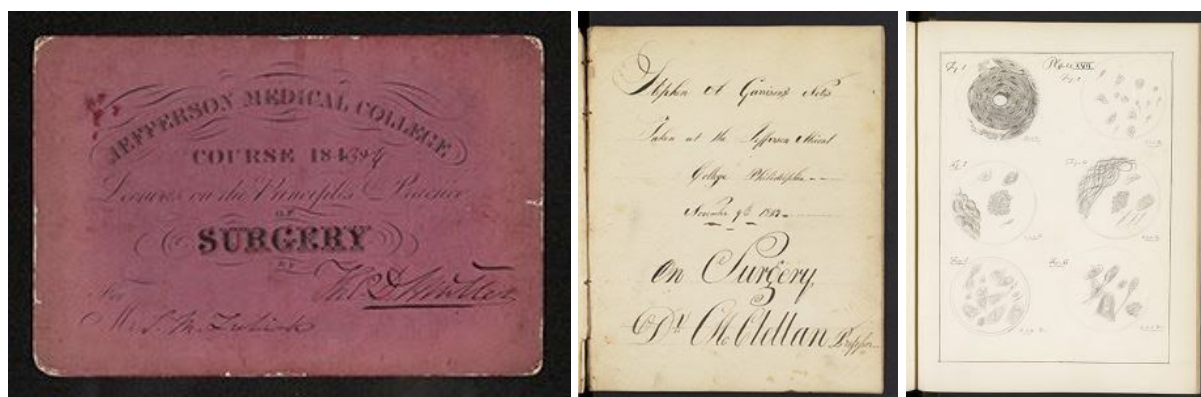 JEFFERSON MEDICAL COLLEGE
COURSE 184
Lectures on the Principles & Practice
OF
SURGERY
BY
Tho. D. Mütter
For
Mr.
Stephen A Garrison's Notes
Taken at the Jefferson Mdical
College Philadelphia
November 9th
On Surgery
Dr McClellan Professor
Plate XVII
Fig. 1
Fig. 2
Fig. 3
Fig. 4
Fig. 5
Fig. 6